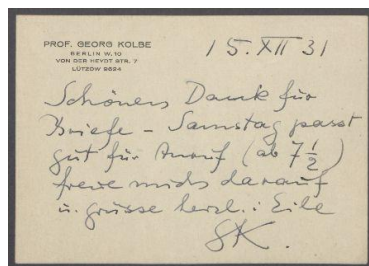 PROF. GEORG KOLBE
BERLIN W. 10
VON DER HEYDT STR. 7
LÜTZOW 9524
15. XII 31
Schönen Dank für
Briefe – Samstag passt
gut für Anruf (ab 7 1/2)
freue mich darauf
u. grüsse herzl. i. Eile
GK.